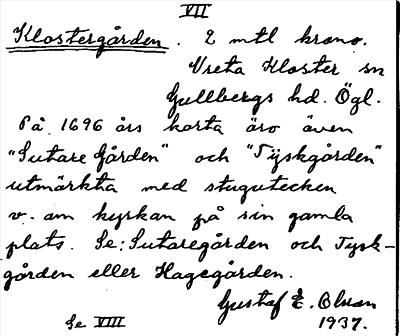 VII
Klostergården. 2 mtl krono.
Vreta Kloster sn
Gullbergs hd. Ögl.
På 1696 års karta äro även
"Sutare Gården" och "Tyskgården"
utmärkta med stugutecken
v. om kyrkan på sin gamla
plats. Se: Sutaregården och Tysk-
gården eller Hagegården.
Gustaf E. Olsson
Se VIII 1937.